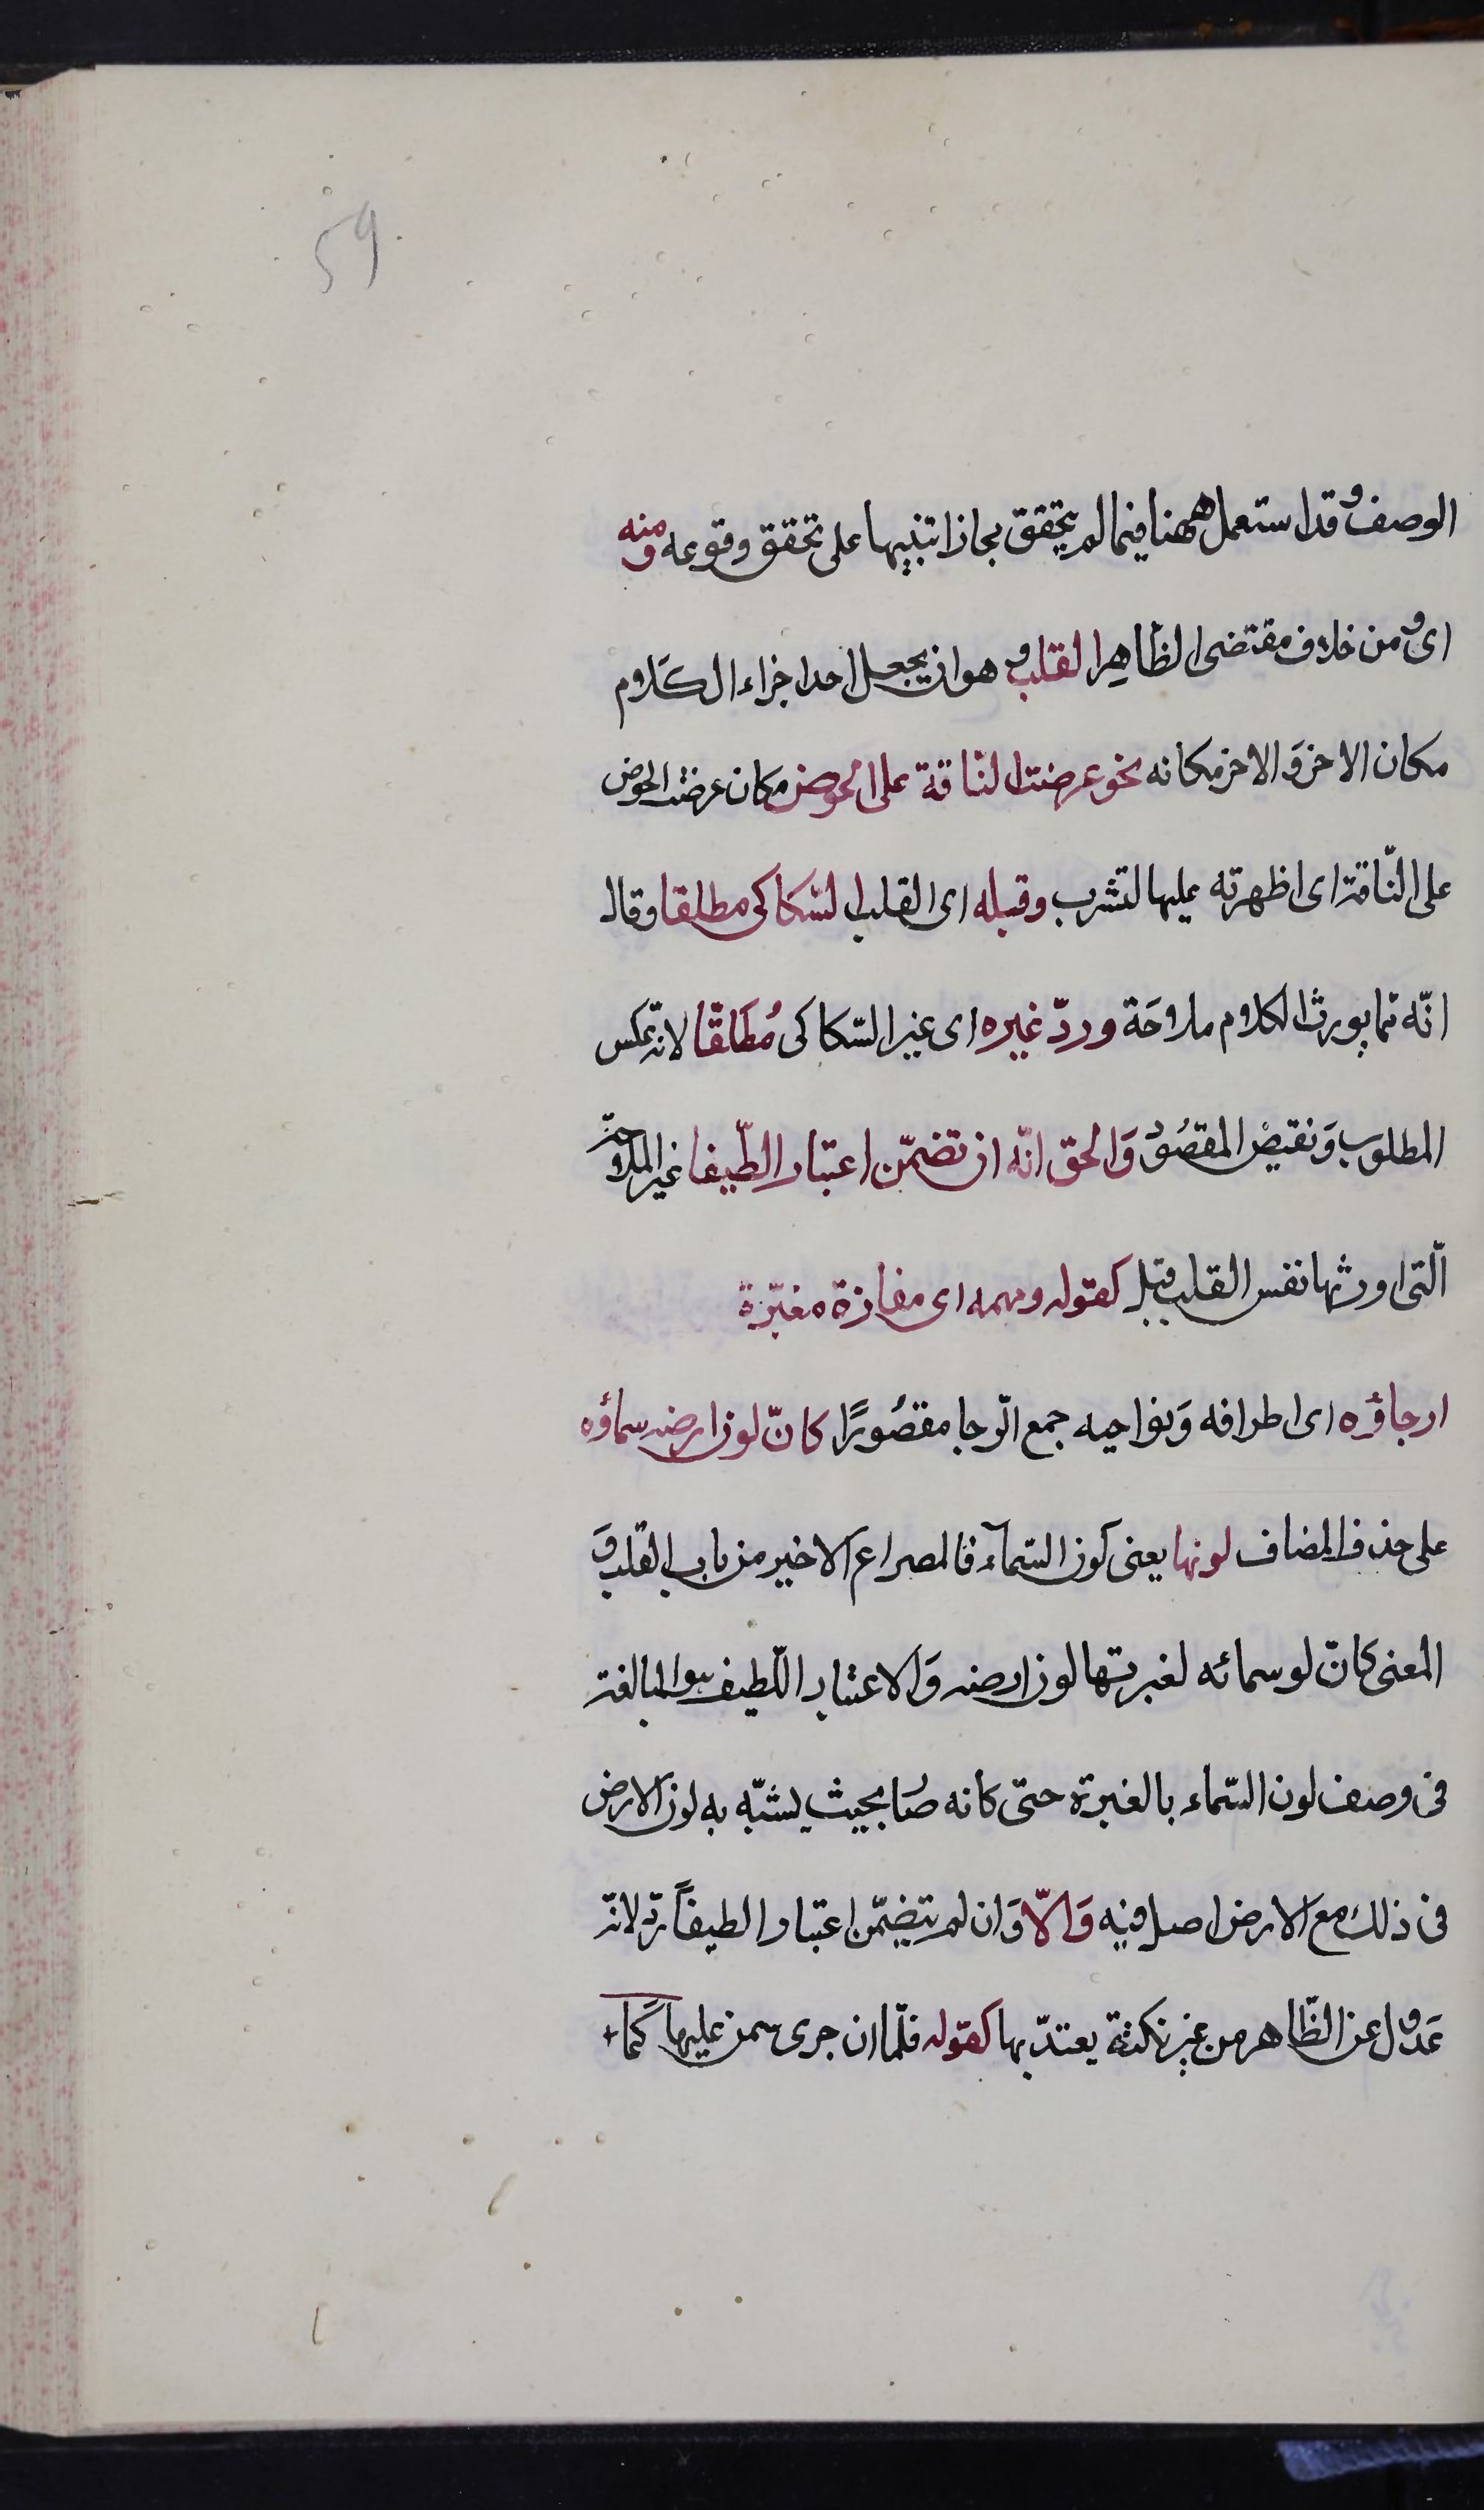 59
الوصف وقد استعمل ههنا فيما لم يتحقق مجازا تنبيها على تحقق وقوعه ومنه
اى ومن خلاف مقتضى الظّاهِر القلب وهو ان يجعل احد اجزاء الكَلام
مكان الاخر وَالاخر مكانه نحو عرضت النّاقة على الحوض مكان عرضت الحوض
على النّاقة اى اظهرته عليها لتشرب وقبله اى القلب السّكاكى مطلقا وقال
انّه مما يورث الكلام ملاوحَة وردّ غيره اى غير السّكاكى مُطلَقًا لانّه عكس
المطلوب وَنقيض المقصُود وَالحق انّه ان تضمّن اعتبارا لطّيفا غير الملاحة
الّتى اورثها نفس القلب قبل كقوله ومهمه اى مفازة مغبرّة
ارجاؤه اى اطرافه وَنواحيه جمع الرّجا مقصُورًا كانّ لون ارضه سماؤه
على حذف المضاف لونها يعنى لون السّمآء فالمصراع الاخير من باب القلب وَ
المعنى كانّ لو سمائه لغبرتها لون ارضه وَالاعتبار اللّطيف هو المبالغة
فى وصف لون السّماء بالغبرة حتى كانه صار بحيث يشبّه به لون الارض
فى ذلك مع الارض اصل فيه وَالّا وَان لم يتضمّن اعتبارا لطيفاً ردّ لانّه
عَدول عن الظّاهر من غير نكتة يعتدّ بها كقوله فلمّا ان جرى سمن عليها كَما